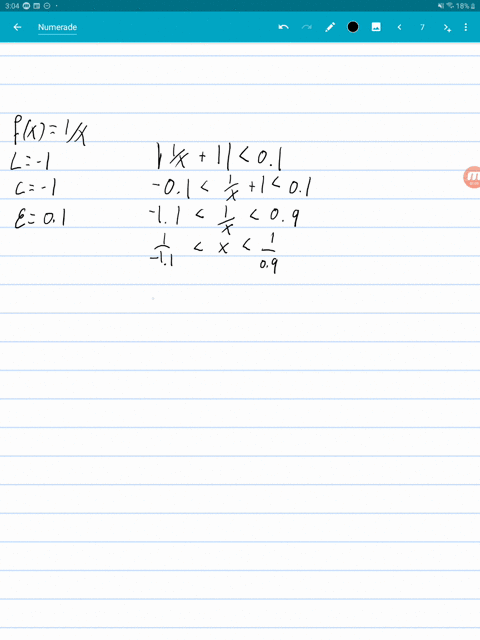 3:04 18%
Numerade 7
f(x)=1/x
L=-1
c=-1
ε=0.1
|1/x + 1| < 0.1
-0.1 < 1/x +1 < 0.1
-1.1 < 1/x < 0.9
1/-1.1 < x < 1/0.9